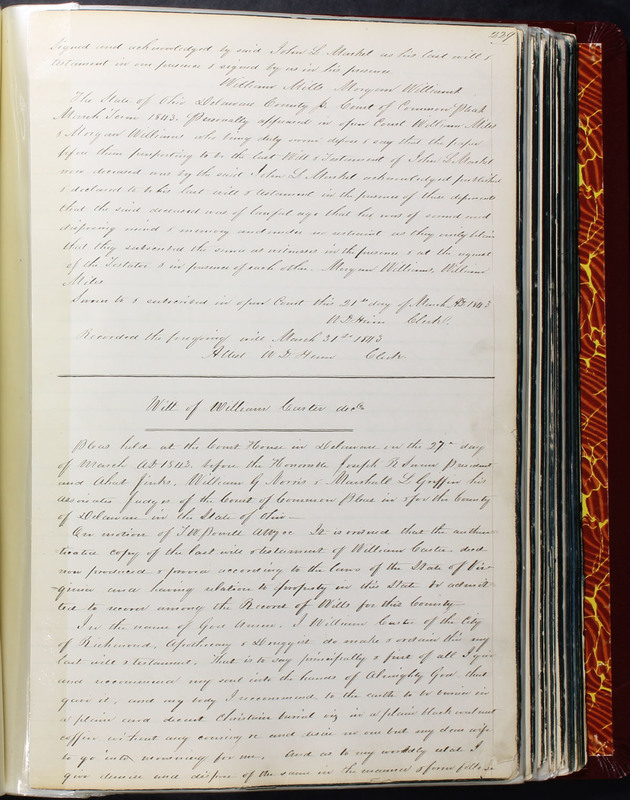 229
Signed and acknowledged by said John L Markel as his last will &
testament in our presence & signed by us in his presence
William Mills Morgan Williams
The State of Ohio Delaware County Ss Court of Common Pleas
March Term 1843. Personally appeared in open Court William Mills
& Morgan Williams who being duly sworn depose & say that the paper
before them purporting to be the last Will & Testament of John L Markel
now deceased was by the said John L Markel acknowledged published
& declared to be his last will & testament in the presence of these deponents
that the said deceased was of lawful age that he was of sound and
disposing mind & memory and under no restraint as they verily believe
that they subscribed the same as witnesses in the presence & at the request
of the Testator & in presence of each other. Morgan Williams, William
Mills
Sworn to & subscribed in open Court this 21st day of March AD 1843
Clerk
Recorded the foregoing will March 31st 1843
Attest Clerk
Will of William Carter decd
Pleas held at the Court House in Delaware on the 27th day
of March AD 1843. before the Honorable Joseph R Swan President
and Ahab Jinks, William G Norris & Marshall L Griffin his
associates Judges of the Court of Common Pleas in & for the County
of Delaware in the State of Ohio—
On motion of T W Powell Atty &c It is ordered that the authen
ticated copy of the last will & testament of William Carter. decd
now produced & proven according to the laws of the State of Vir
ginia and having relation to property in this State be admit
ted to record among the Record of Wills for this County—
In the name of God Amen. I William Carter of the City
of Richmond, Apothecary & Druggist do make & ordain this my
last will & testament. That is to say principally & first of all I give
and recommend my soul into the hands of Almighty God that
gave it, and my body I recommend to the earth to be buried in
a plain and decent Christian burial viz in a plain black walnut
coffin without any covering and desire no one but my dear wife
to go into mourning for me. And as to my worldly estate I
give demise and dispose of the same in the manner & form follow